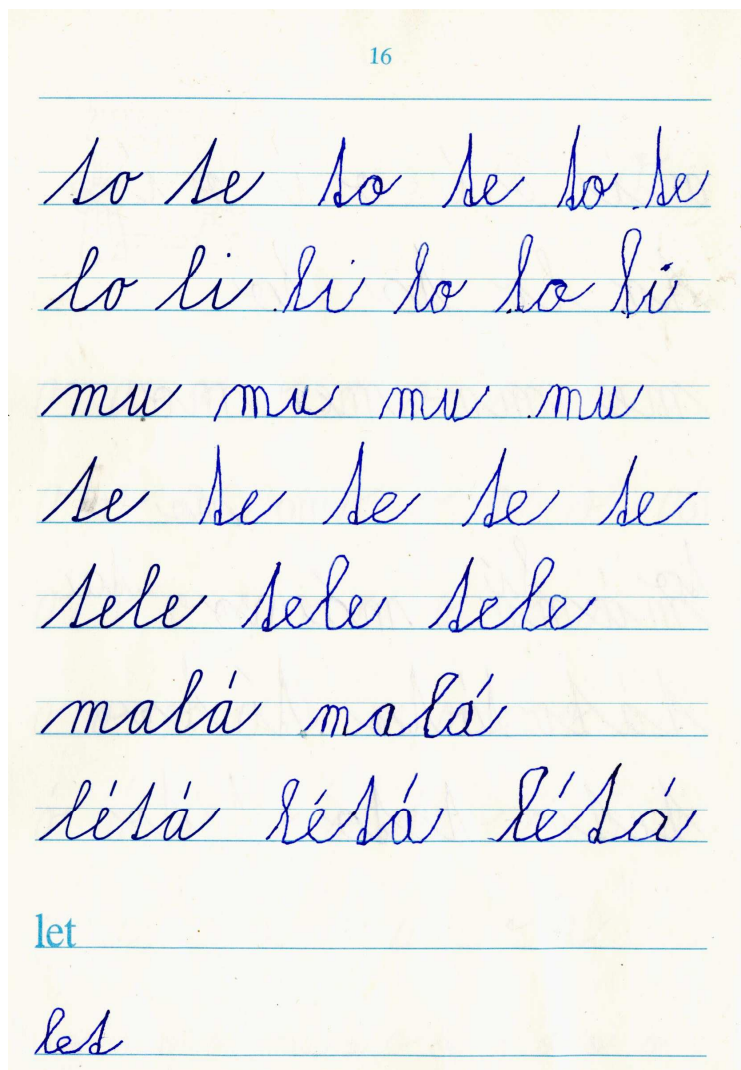 16
to te to te to te
lo li li lo lo li
mu mu mu mu
te te te te te
tele tele tele
malá malá
létá létá létá
let
let